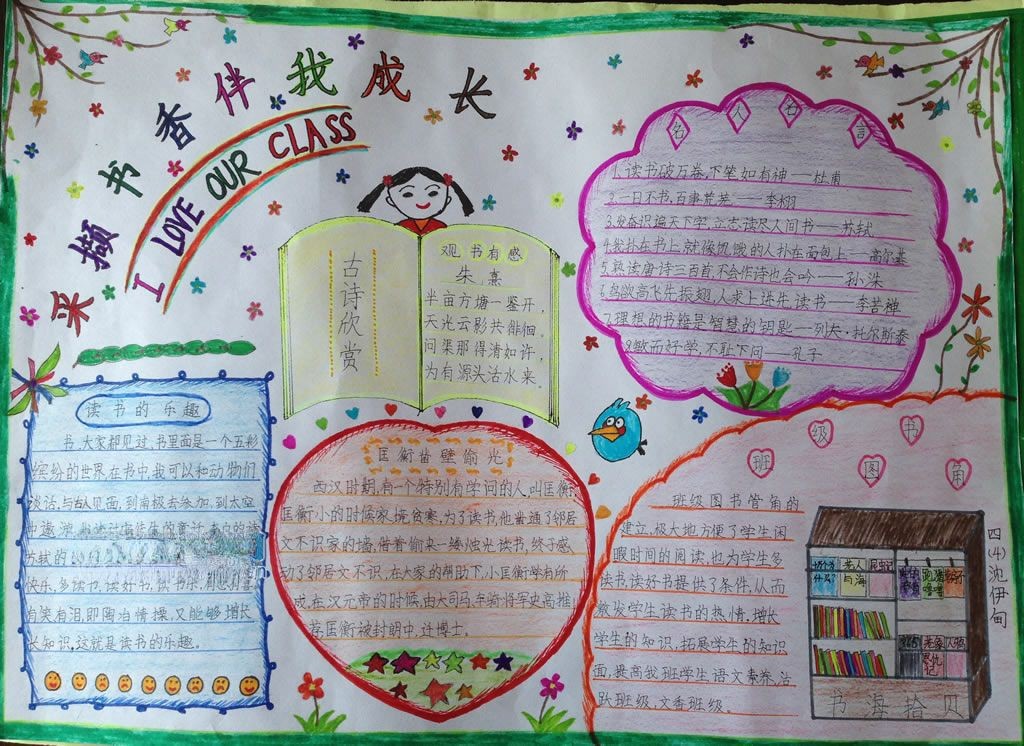 采撷书香伴我成长
I LOVE OUR CLASS
古诗欣赏
观书有感
朱熹
半亩方塘一鉴开，
天光云影共徘徊。
问渠那得清如许，
为有源头活水来。
名人名言
1.读书破万卷，下笔如有神——杜甫
2.一日不书，百事荒芜.——李栩
3.发奋识遍天下字，立志读尽人间书——苏轼
4.我扑在书上，就像饥饿的人扑在面包上——高尔基
5.熟读唐诗三百首，不会作诗也会吟——孙洙
6.鸟欲高飞先振翅，人求上进先读书——李苦禅
7.理想的书籍是智慧的钥匙——列夫·托尔斯泰
敏而好学，不耻下问——孔子
读书的乐趣
书，大家都见过，书里面是一个五彩
缤纷的世界.在书中，我可以和动物们
谈话，与仙人见面，到南极去参加，到太空
方叔的
快乐，多读书，读好书，读书
有笑有泪，即陶冶情操，又能够增长
长知识，这就是读书的乐趣。
匡衡凿壁偷光
西汉时期，有一个特别有学问的人，叫匡衡，
匡衡小的时候家境贫寒，为了读书，他凿通了邻居
文不识家的墙，借着偷来一缕烛光读书，终于感
动了邻居文不识，在大家的帮助下，小匡衡学有所
成.在汉元帝的时候，由大司马、车骑将军史高推
荐，匡衡被封朗中，迁博士。
班级图书角
班级图书管角的
建立，极大地方便了学生闲
暇时间的阅读，也为学生多
读书，读好书提供了条件，从而
激发学生读书的热情，增长
学生的知识，拓展学生的知识
面，提高我班学生语文素养，活
跃班级，文香班级。
老人与海
书海拾贝
四（4）沈伊甸